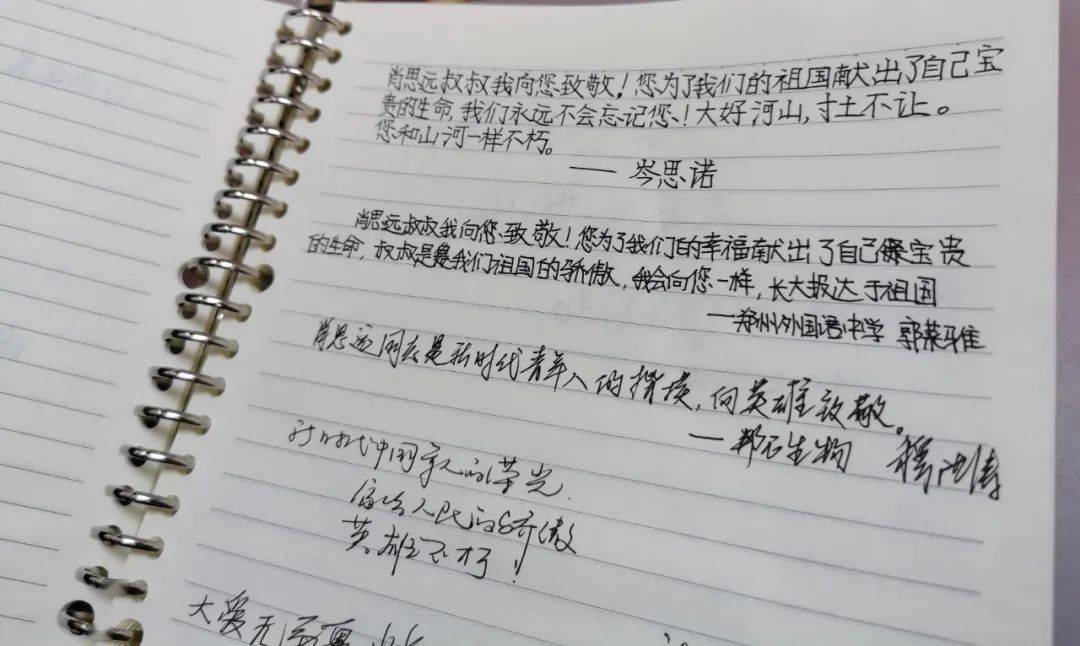 肖思远叔叔我向您致敬！您为了我们的祖国献出了自己宝
贵的生命，我们永远不会忘记您！大好河山，寸土不让。
您和山河一样不朽。
—— 岑思诺
肖思远叔叔我向您致敬！您为了我们的幸福献出了自己宝贵
的生命，叔叔是我们祖国的骄傲，我会向您一样，长大报达于祖国
—郑州外国语中学 郭
肖思远同志是新时代青年人的楷模，向英雄致敬。
—生物
新时代中国军人的荣光
人民的骄傲
英雄不朽！
大爱无